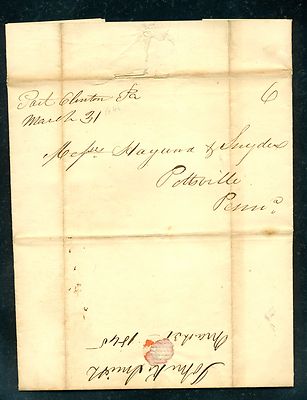 Port Clinton Pa
March 31
6
Messrs Haywood & Snyder
Pottsville
Penna
John R. Smith
March 31
1845